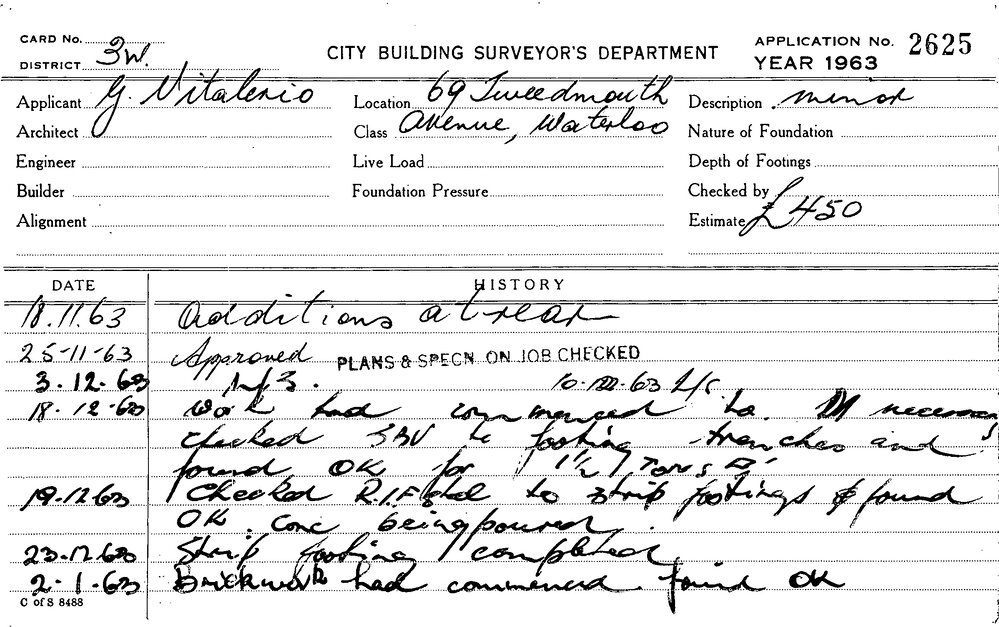 CARD No.
DISTRICT 3W.
CITY BUILDING SURVEYOR'S DEPARTMENT
APPLICATION No. 2625
YEAR 1963
Applicant G. Vitalenio
Location 69 Tweedmouth
Description minor
Architect
Class Avenue, Waterloo
Nature of Foundation
Engineer
Live Load
Depth of Footings
Builder
Foundation Pressure
Checked by
Alignment
Estimate £450
DATE
HISTORY
18.11.63 Additions at rear
25-11-63 Approved PLANS & SPECN. ON JOB CHECKED
3.12.63 10-12-63
18.12.63 Work had commenced
checked to footing trenches and
found OK for 1½ Tons
19.12.63 Checked R.I.F. steel to strip footings & found
OK. Conc being poured.
23.12.63 Strip footing completed
2.1.63 Brickwork had commenced. found OK
C of S 8488